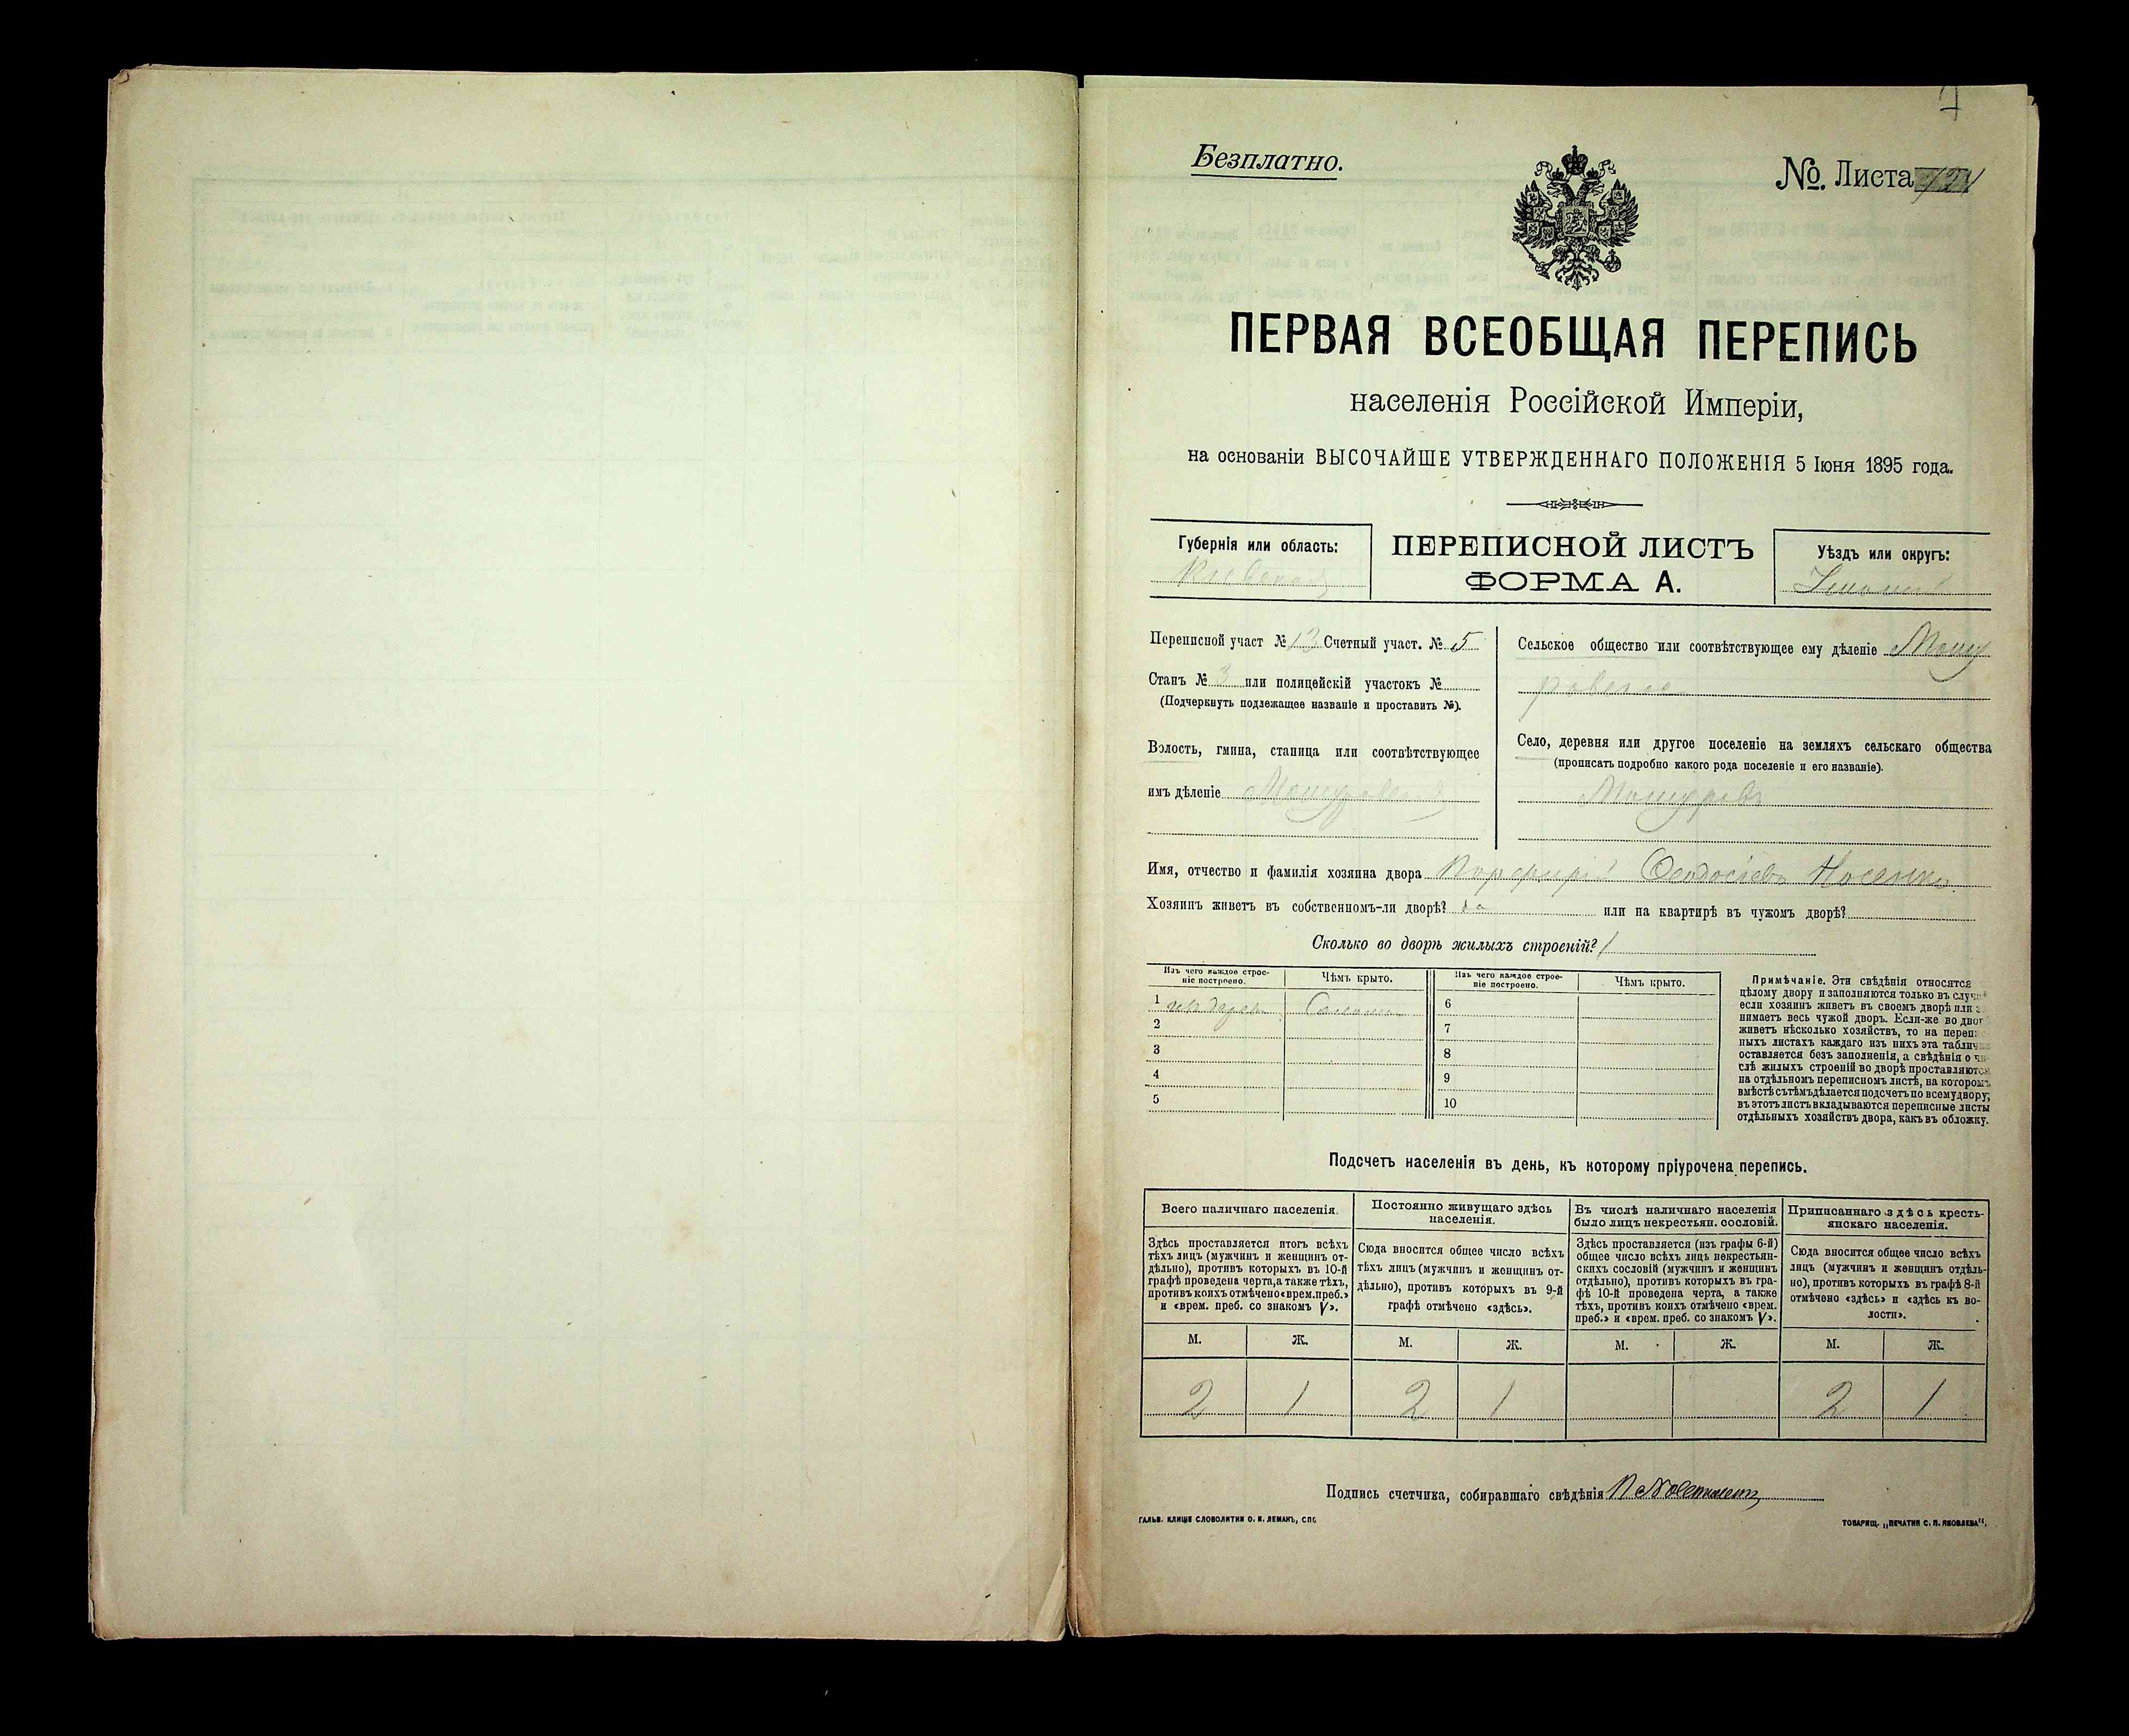 7
Безплатно.
№. Листа
ПЕРВАЯ ВСЕОБЩАЯ ПЕРЕПИСЬ
населенія Россійской Имперіи,
на основаніи ВЫСОЧАЙШЕ УТВЕРЖДЕННАГО ПОЛОЖЕНІЯ 5 Іюня 1895 года.
Губернія или область:
Кіевская
ПЕРЕПИСНОЙ ЛИСТЪ
ФОРМА А.
Уѣздъ или округъ:
Переписной участ № 13 Счетный участ. № 5
Станъ № 3 или полицейскій участокъ №
(Подчеркнуть подлежащее названіе и проставить №).
Волость, гмина, станица или соотвѣтствующее
имъ дѣленіе Машуровская
Сельское общество или соотвѣтствующее ему дѣленіе Машу
ровское
Село, деревня или другое поселеніе на земляхъ сельскаго общества
(прописать подробно какого рода поселеніе и его названіе).
Машуровъ
Имя, отчество и фамилія хозяина двора Порфирій Феодосіевъ Носенко
Хозяинъ живетъ въ собственномъ-ли дворѣ? да или на квартирѣ въ чужомъ дворѣ?
Сколько во дворѣ жилыхъ строеній? 1
Изъ чего каждое строе-
ніе построено.
Чѣмъ крыто.
1 изъ дерева Соломы
2
3
4
5
Изъ чего каждое строе-
ніе построено.
Чѣмъ крыто.
6
7
8
9
10
Примѣчаніе. Эти свѣдѣнія относятся
цѣлому двору и заполняются только въ случ
если хозяинъ живетъ въ своемъ дворѣ или
нимаетъ весь чужой дворъ. Если-же во двор
живетъ нѣсколько хозяйствъ, то на переп
ныхъ листахъ каждаго изъ нихъ эта таблич
оставляется безъ заполненія, а свѣдѣнія о чи
слѣ жилыхъ строеній во дворѣ проставляются
на отдѣльномъ переписномъ листѣ, на которомъ
вмѣстѣ съ тѣмъ дѣлается подсчетъ по всему двору;
въ этотъ листъ вкладываются переписные листы
отдѣльныхъ хозяйствъ двора, какъ въ обложку.
Подсчетъ населенія въ день, къ которому пріурочена перепись.
Всего наличнаго населенія.
Здѣсь проставляется итогъ всѣхъ
тѣхъ лицъ (мужчинъ и женщинъ от-
дѣльно), противъ которыхъ въ 10-й
графѣ проведена черта, а также тѣхъ,
противъ коихъ отмѣчено «врем. преб.»
и «врем. преб. со знакомъ V».
М. Ж.
2 1
Постоянно живущаго здѣсь
населенія.
Сюда вносится общее число всѣхъ
тѣхъ лицъ (мужчинъ и женщинъ от-
дѣльно), противъ которыхъ въ 9-й
графѣ отмѣчено «здѣсь».
М. Ж.
2 1
Въ числѣ наличнаго населенія
было лицъ некрестьян. сословій.
Здѣсь проставляется (изъ графы 6-й)
общее число всѣхъ лицъ некрестьян-
скихъ сословій (мужчинъ и женщинъ
отдѣльно), противъ которыхъ въ гра-
фѣ 10-й проведена черта, а также
тѣхъ, противъ коихъ отмѣчено «врем.
преб.» и «врем. преб. со знакомъ V».
М. Ж.
Приписаннаго здѣсь кресть-
янскаго населенія.
Сюда вносится общее число всѣхъ
лицъ (мужчинъ и женщинъ отдѣль-
но), противъ которыхъ въ графѣ 8-й
отмѣчено «здѣсь» и «здѣсь къ во-
лости».
М. Ж.
2 1
Подпись счетчика, собиравшаго свѣдѣнія
ГАЛЬВ. КЛИШЕ СЛОВОЛИТНИ О. И. ЛЕМАНЪ, СПБ
ТОВАРИЩ. „ПЕЧАТНЯ С. П. ЯКОВЛЕВА“.